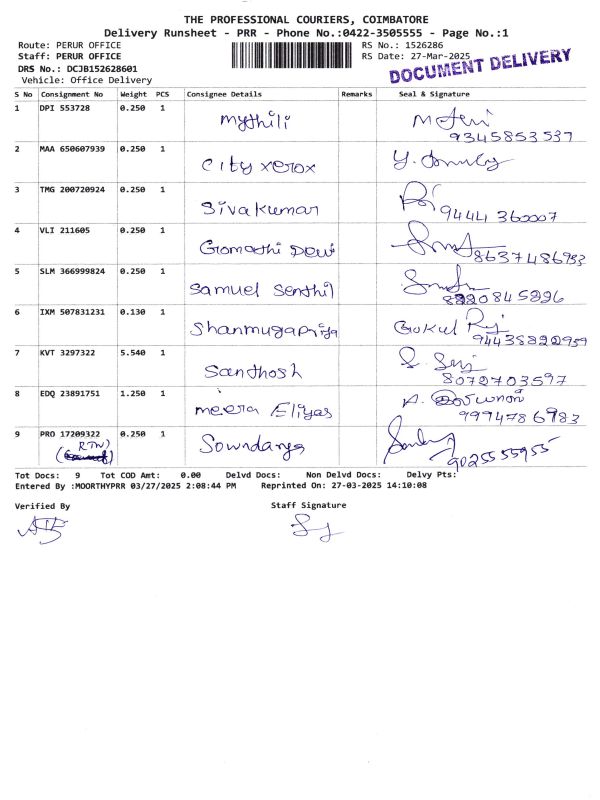 THE PROFESSIONAL COURIERS, COIMBATORE
Delivery Runsheet - PRR - Phone No.:0422-3505555 - Page No.:1
Route: PERUR OFFICE
RS No.: 1526286
Staff: PERUR OFFICE
RS Date: 27-Mar-2025
DOCUMENT DELIVERY
DRS No.: DCJB152628601
Vehicle: Office Delivery
S No Consignment No Weight PCS Consignee Details Remarks Seal & Signature
1 DPI 553728 0.250 1 Mythili
9345853537
2 MAA 650607939 0.250 1 City xerox
3 TMG 200720924 0.250 1 Sivakumar
9444360007
4 VLI 211605 0.250 1 Gomathi Devi
8637486983
5 SLM 366999824 0.250 1 Samuel Senthil
6 IXM 507831231 0.130 1 Shanmugapriya Gokul
7 KVT 3297322 5.540 1 Santhosh
8072703597
8 EDQ 23891751 1.250 1 meera Eliyas
9994786983
9 PRO 17209322 0.250 1 Sowndarya
RTN
9025555955
Tot Docs: 9 Tot COD Amt: 0.00 Delvd Docs: Non Delvd Docs: Delvy Pts:
Entered By :MOORTHYPRR 03/27/2025 2:08:44 PM Reprinted On: 27-03-2025 14:10:08
Verified By Staff Signature